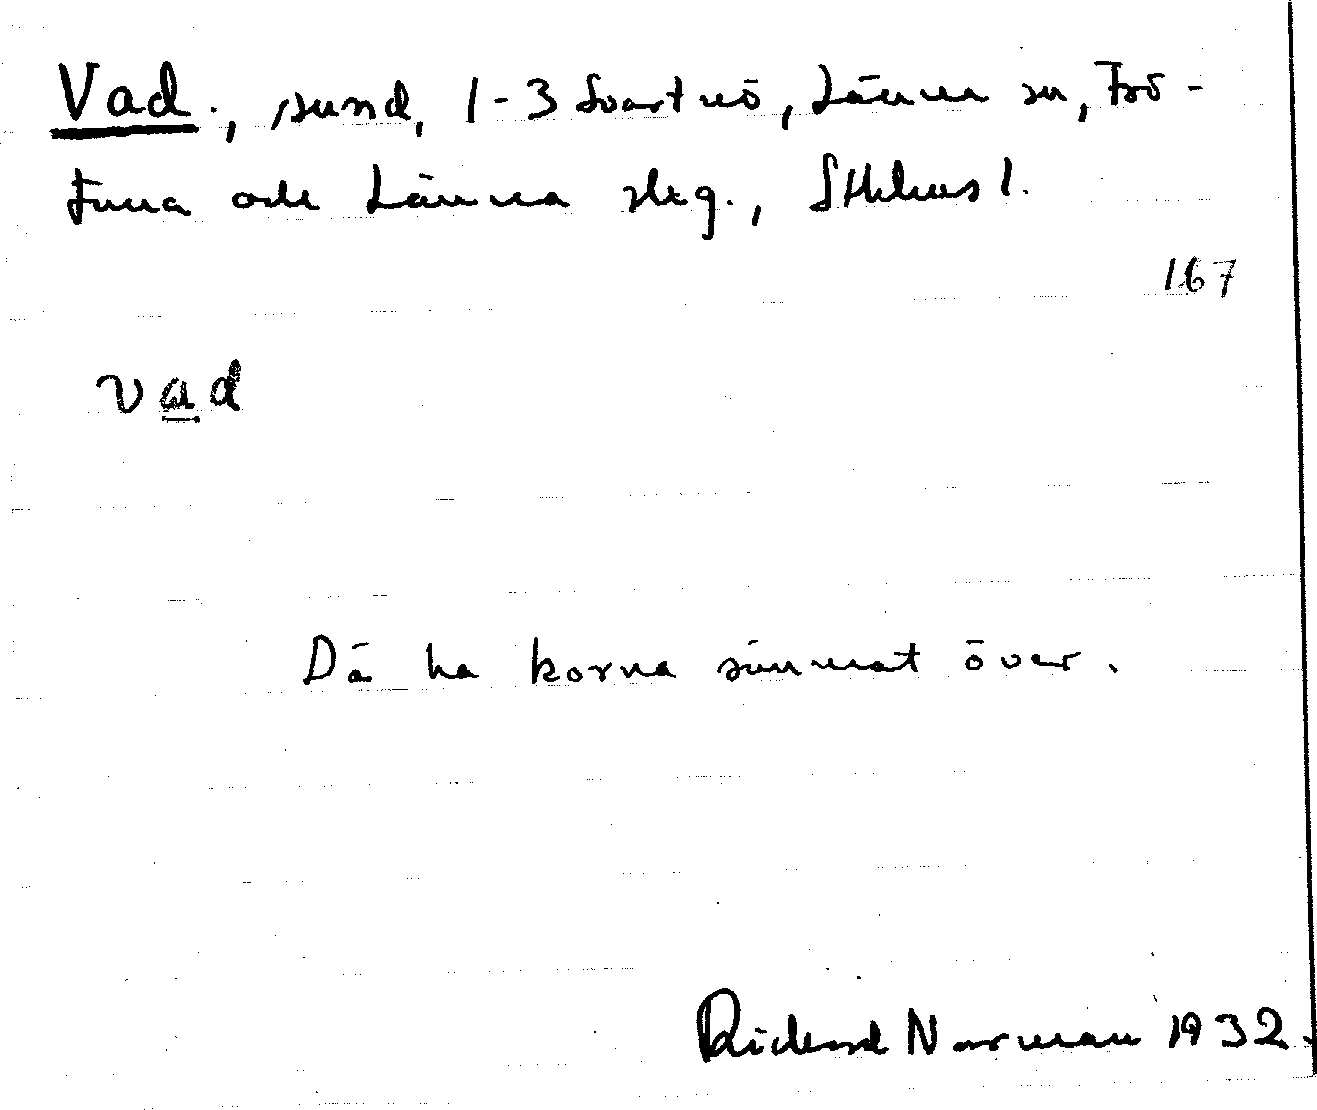 Vad., sund, 1-3 Svartnö, Länna sn, Frö-
tuna och Länna skg., Sthlms l.
167
vad
Då ha korna summit över.
Rickard Norman 1932.